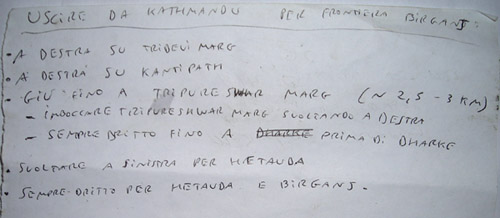 USCIRE DA KATHMANDU PER FRONTIERA BIRGANJ:
• A DESTRA SU TRIDEVI MARG
• A DESTRA SU KANTIPATH
- GIU' FINO A TRIPURESHWAR MARG (~ 2,5 - 3 KM)
- IMBOCCARE TRIPURESHWAR MARG SVOLTANDO A DESTRA
- SEMPRE DRITTO FINO A DHARKE PRIMA DI DHARKE
• SVOLTARE A SINISTRA PER HETAUDA
• SEMPRE DRITTO PER HETAUDA E BIRGANJ.